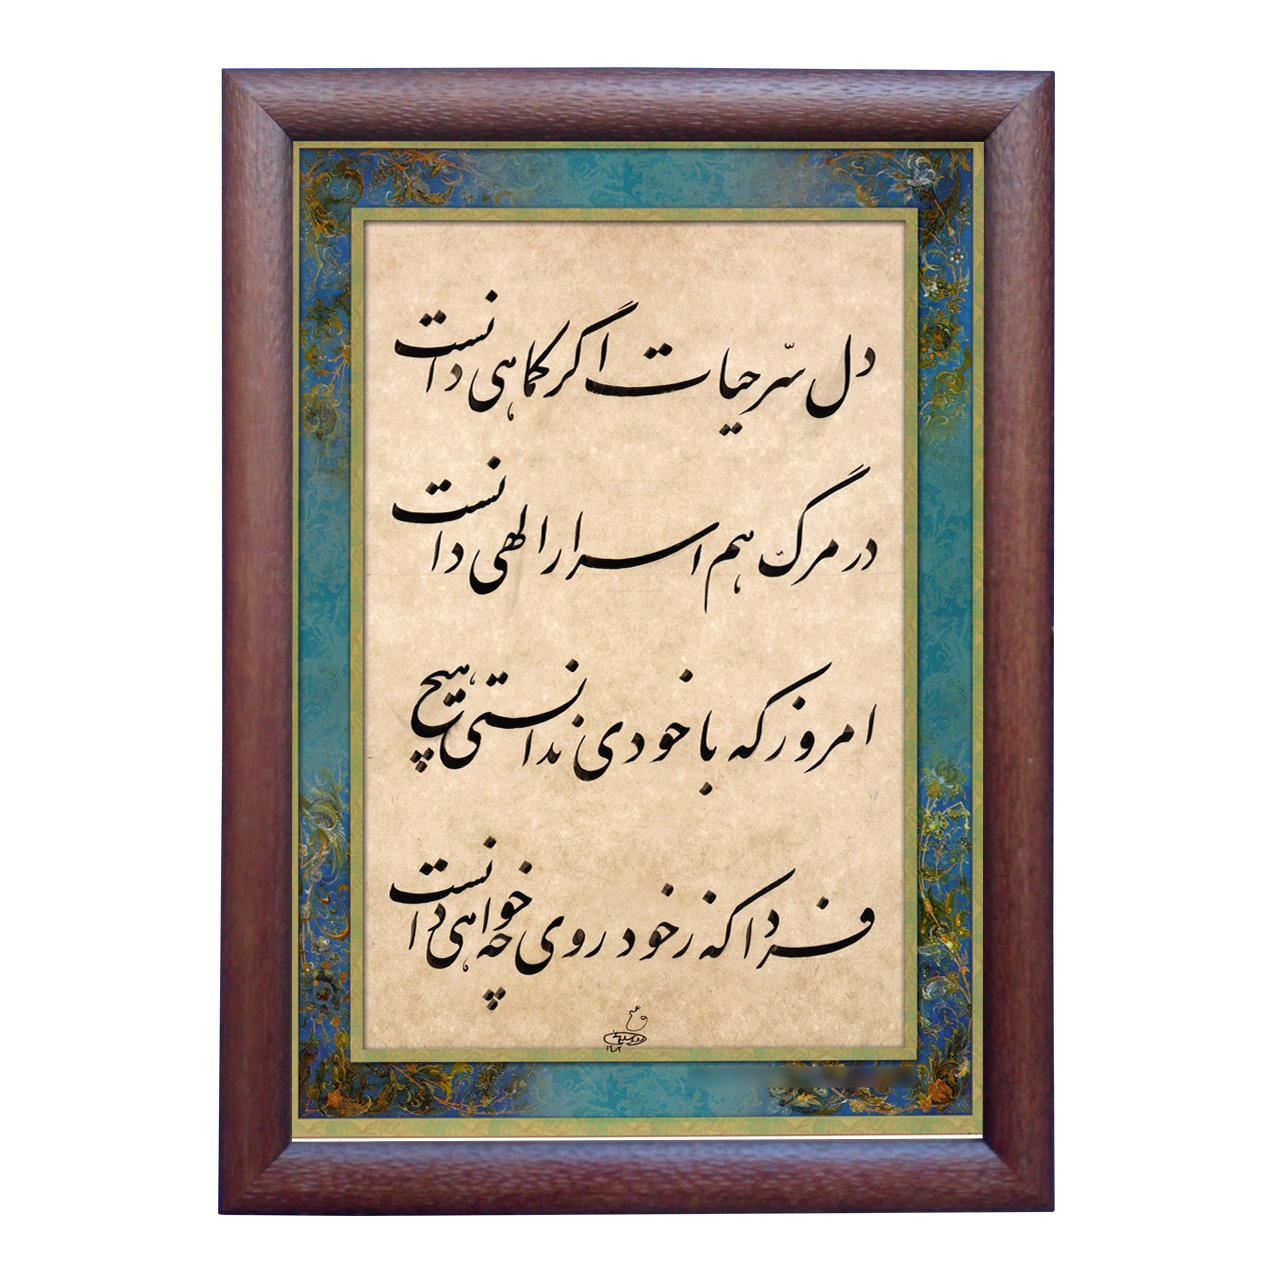 دل سّر حیات اگر کماهی دانست
در مرگ هم اسرار الهی دانست
امروز که با خودی ندانستی هیچ
فردا که ز خود روی چه خواهی دانست